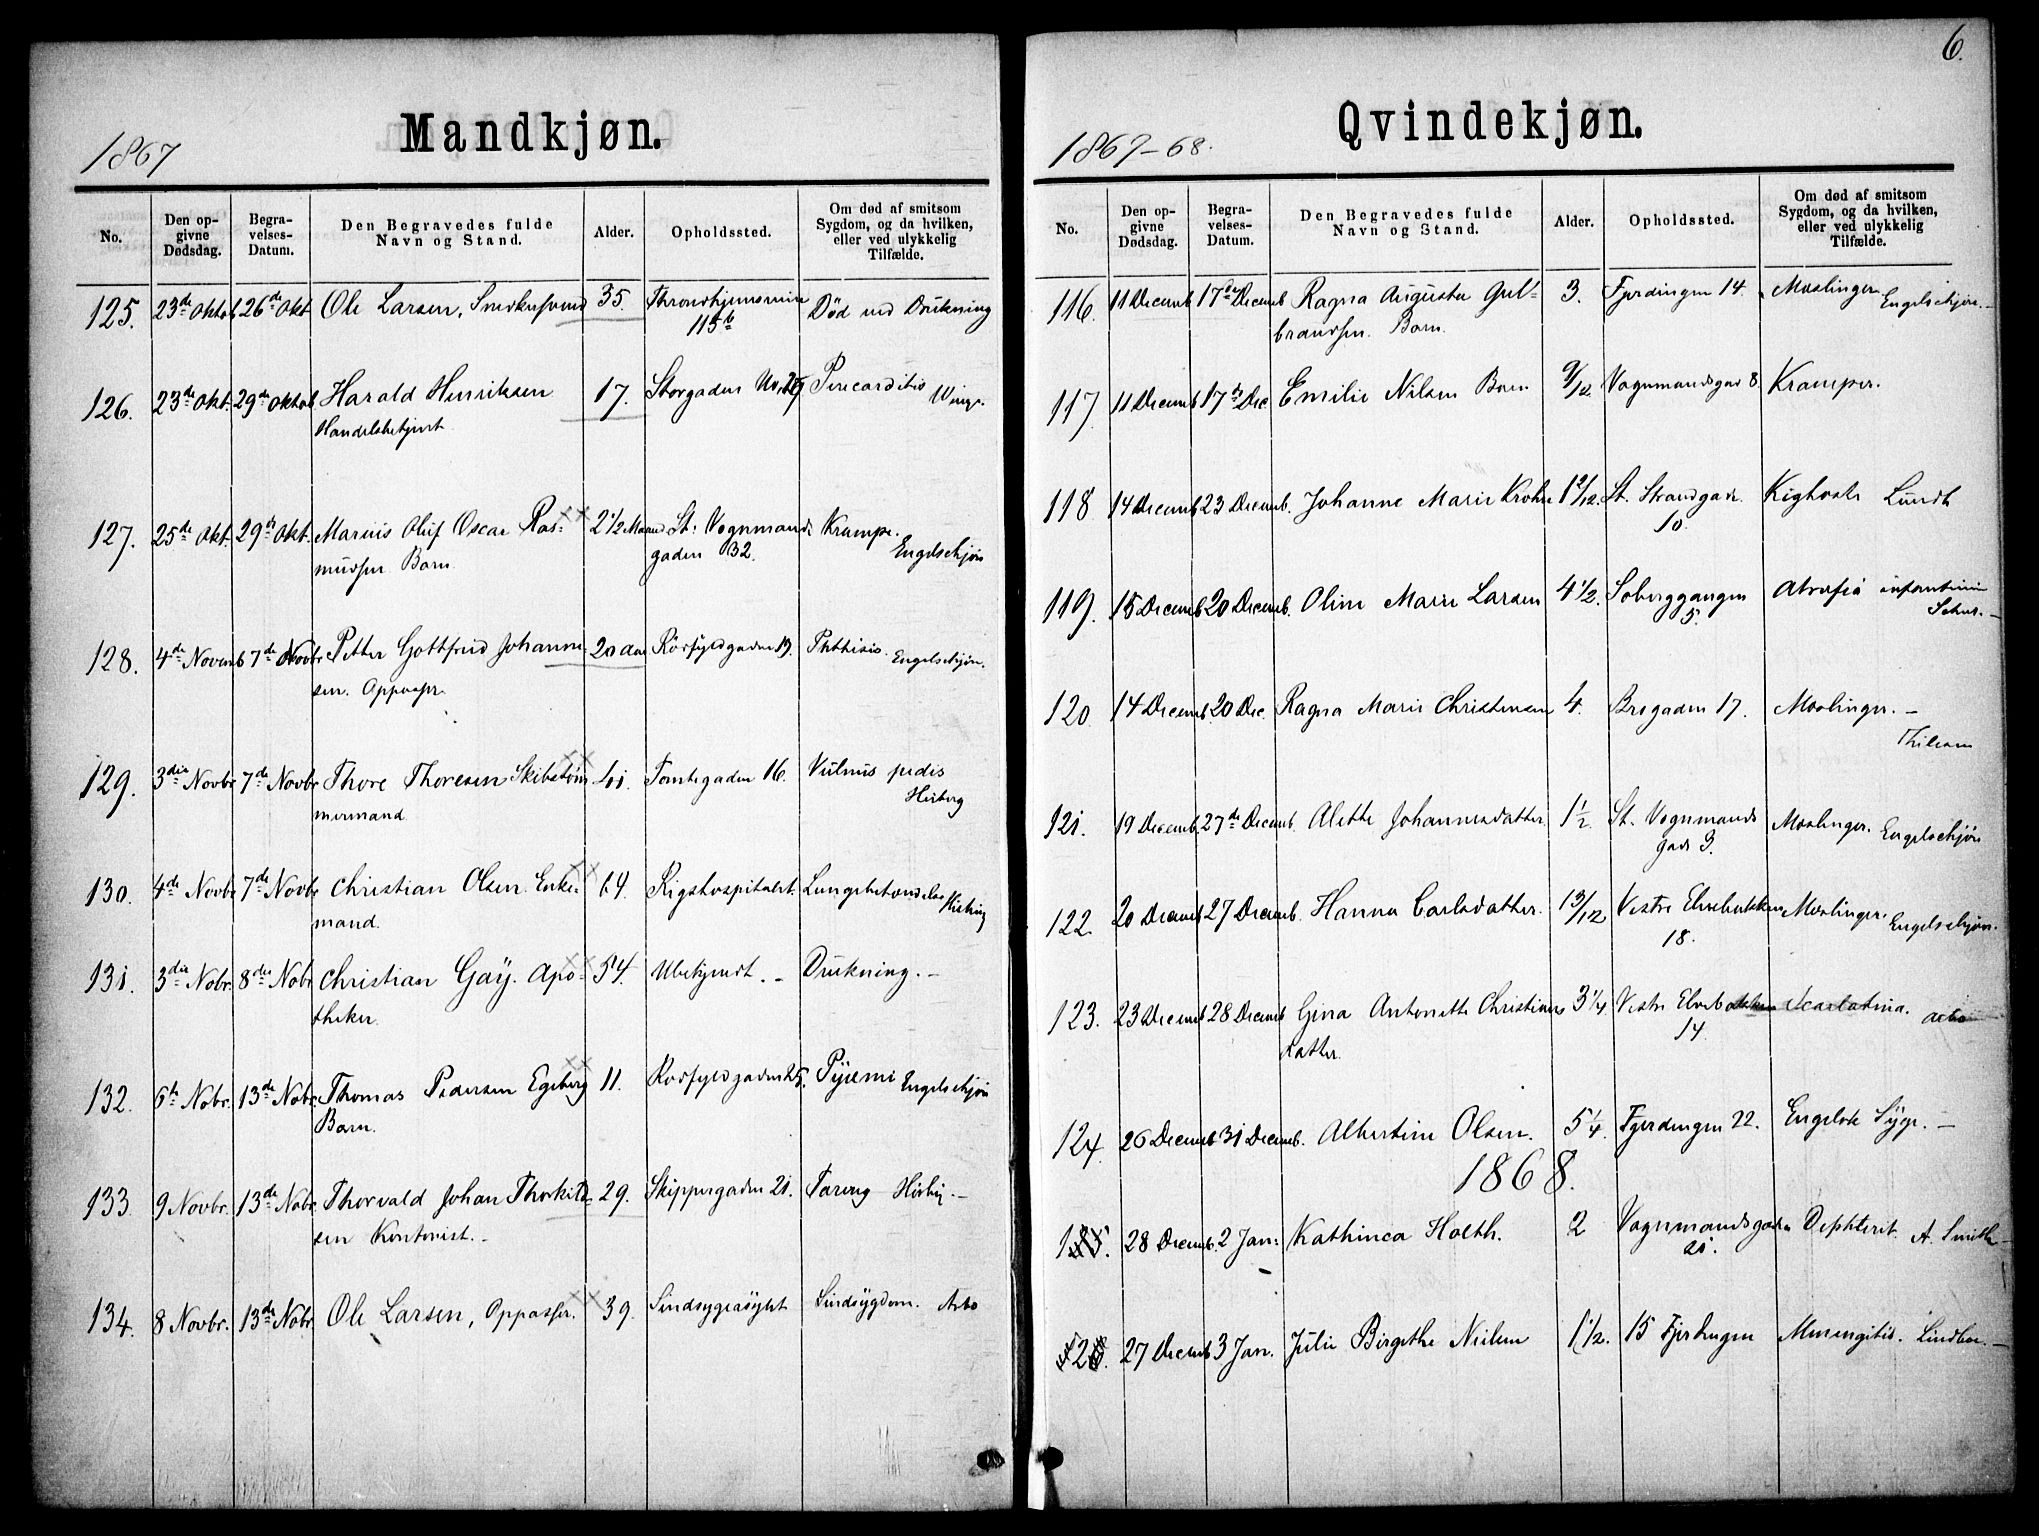 6.
Mandkjøn.
1867
No.
Den opgivne Dødsdag.
Begravelses-Datum.
Den Begravedes fulde Navn og Stand.
Alder.
Opholdssted.
Om død af smitsom Sygdom, og da hvilken, eller ved ulykkelig Tilfælde.
125. 23de Oktob 26de Okt Ole Larsen, 35. Throndhjemsveien Død ved Drukning
115b
126. 23de Okt. 29de Oktob Harald Henriksen 17. Storgaden No. Pericarditis Winge.
Handelsbetjent
127. 25de Okt. 29de Okt. Marius Oluf Oscar Ras= 2 1/2 Maaned St: Vognmands Krampe. Engelschjøn
mussen Barn gaden 32.
128. 4de Novemb 7de Novbr Petter Gottfried Johanne 20 aar Rørfyldgaden 19. Phthisis. Engelschjøn.
sen. Oppasser.
129. 3die Novbr 7de Novbr Thore Thoresen Skibstøm 41. Tomtegaden 16. Vulnus pedis
mermand Heiberg
130. 4de Novbr 7de Novbr Christian Olsen. Enke= 64. Rigshospitalet. Lungebetændelse
mand.
131. 3die Nobr. 8de Nobr Christian Gaÿ. Apo= 54. Ubekjendt. - Drukning. -
theker.
132. 6te Nobr. 13de Nobr. Thomas Pedersen Egeberg 11. Rørfyldgaden 25. Pÿæmi Engelschjøn
Barn.
133. 9 Novbr. 13de Nobr. Thorvald Johan Thorkild= 29. Skippergaden 21. Taring
sen Kontorist. -
134. 8 Novbr. 13de Nobr. Ole Larsen, Oppasser. 39. Sindsygeasylet Sindsÿgdom. Arbo
Qvindekjøn.
1867-68.
No.
Den opgivne Dødsdag.
Begravelses-Datum.
Den Begravedes fulde Navn og Stand.
Alder.
Opholdssted.
Om død af smitsom Sygdom, og da hvilken, eller ved ulykkelig Tilfælde.
116. 11 Decemb 17de Decemb Ragna Augusta Gul= 3. Fjerdingen 14. Meslinger. Engelschjøn. -
brandsen. Barn.
117. 11 Decemb 17de Dec Emilie Nilsen Barn 9/12. Vognmandsgad 8. Kramper.
118 14 Decemb 23 Decemb. Johanne Marie Krohn 1 2/12. St. Strandgade Kighoste Lundh
10.
119. 15 Decemb 20 Decemb. Oline Marie Larsen 4 1/2. Soberggangen Atrofia
5.
120. 14 Decemb. 20 Dec. Ragna Marie Christensen 4. Brogaden 17. Meslinger. -
121. 19 Decemb. 27de Decemb. Alette Johannesdatter. 1 1/2. St. Vognmands Meslinger. Engelschjøn
gade 3.
122. 20 Decemb 27 Decemb. Hanna Carlsdatter. 13/12 Vestre Elvebakken Meslinger. Engelschjøn.
18.
123. 23 Decemb 28 Decemb Gina Antonette Christians 3 1/4 Vestre Elvebakken Scarlatina. Arbo
datter. 14.
124. 26 Decemb 31 Decemb. Albertine Olsen. 5 1/4. Fjerdingen 22. Engelsk Sÿge. -
1868.
1. 28 Decemb. 2 Jan: Kathinca Holth. 2 Vognmandsgaden Dephterit. A. Smith -
21.
2. 27 Decemb 3 Jan. Julie Birgithe Nielsen 1 1/2. 15 Fjerdingen Meningitis.